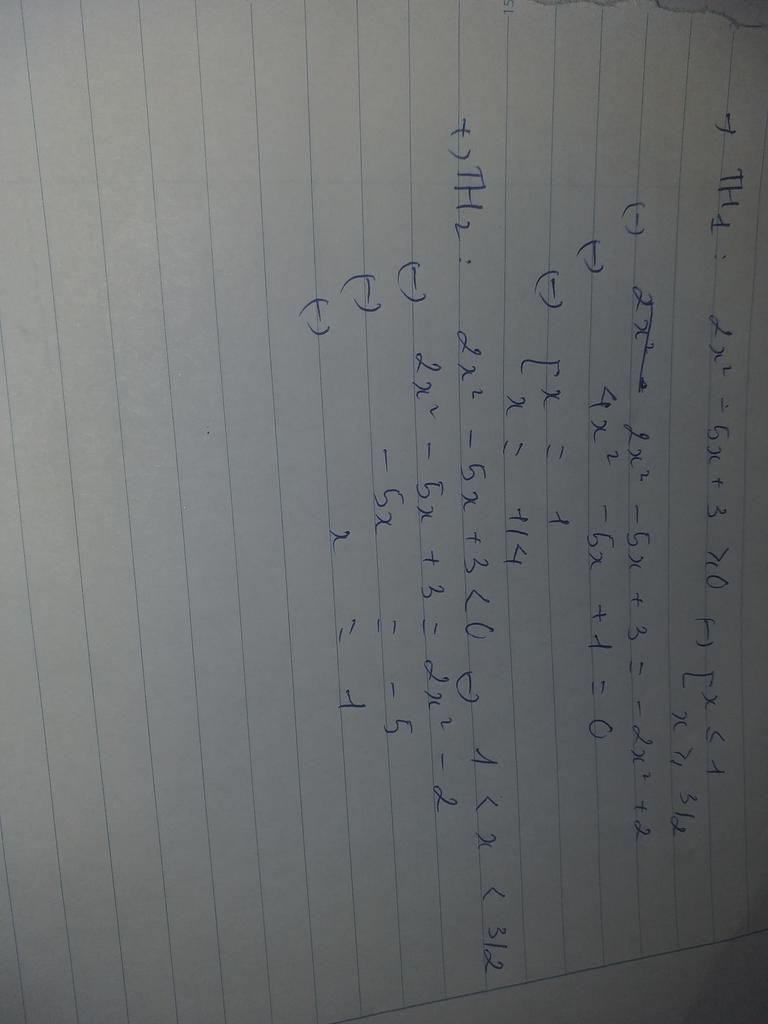 +) TH1: 2x² - 5x + 3 ≥ 0 (-) [ x ≤ 1
x ≥ 3/2
(-) 2x² - 5x + 3 = - 2x² + 2
(-) 4x² - 5x + 1 = 0
(-) [ x = 1
x = 1/4
+) TH2: 2x² - 5x + 3 < 0 (-) 1 < x < 3/2
(-) 2x² - 5x + 3 = 2x² - 2
(-) - 5x = - 5
(-) x = 1